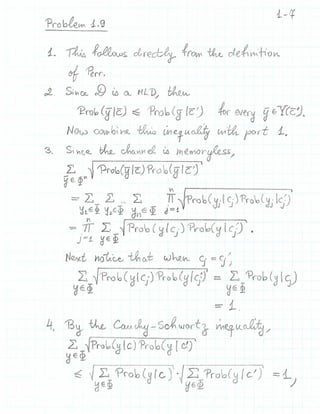 1-7
Problem 1.9
1. This follows directly from the definition
of Perr.
2. Since 𝒟 is a MLD, then
Prob(ȳ|c̄) ≤ Prob(ȳ|c̄') for every ȳ ∈ Y(c̄').
Now combine this inequality with part 1.
3. Since the channel is memoryless,
Σ_{ȳ∈Φⁿ} √(Prob(ȳ|c̄) Prob(ȳ|c̄'))
= Σ_{y₁∈Φ} Σ_{y₂∈Φ} ... Σ_{yₙ∈Φ} Π_{j=1}^{n} √(Prob(y_j|c_j) Prob(y_j|c_j'))
= Π_{j=1}^{n} Σ_{y∈Φ} √(Prob(y|c_j) Prob(y|c_j')) .
Next notice that when c_j = c_j',
Σ_{y∈Φ} √(Prob(y|c_j) Prob(y|c_j')) = Σ_{y∈Φ} Prob(y|c_j)
= 1.
4. By the Cauchy-Schwartz inequality,
Σ_{y∈Φ} √(Prob(y|c) Prob(y|c'))
≤ √(Σ_{y∈Φ} Prob(y|c)) · √(Σ_{y∈Φ} Prob(y|c')) = 1,